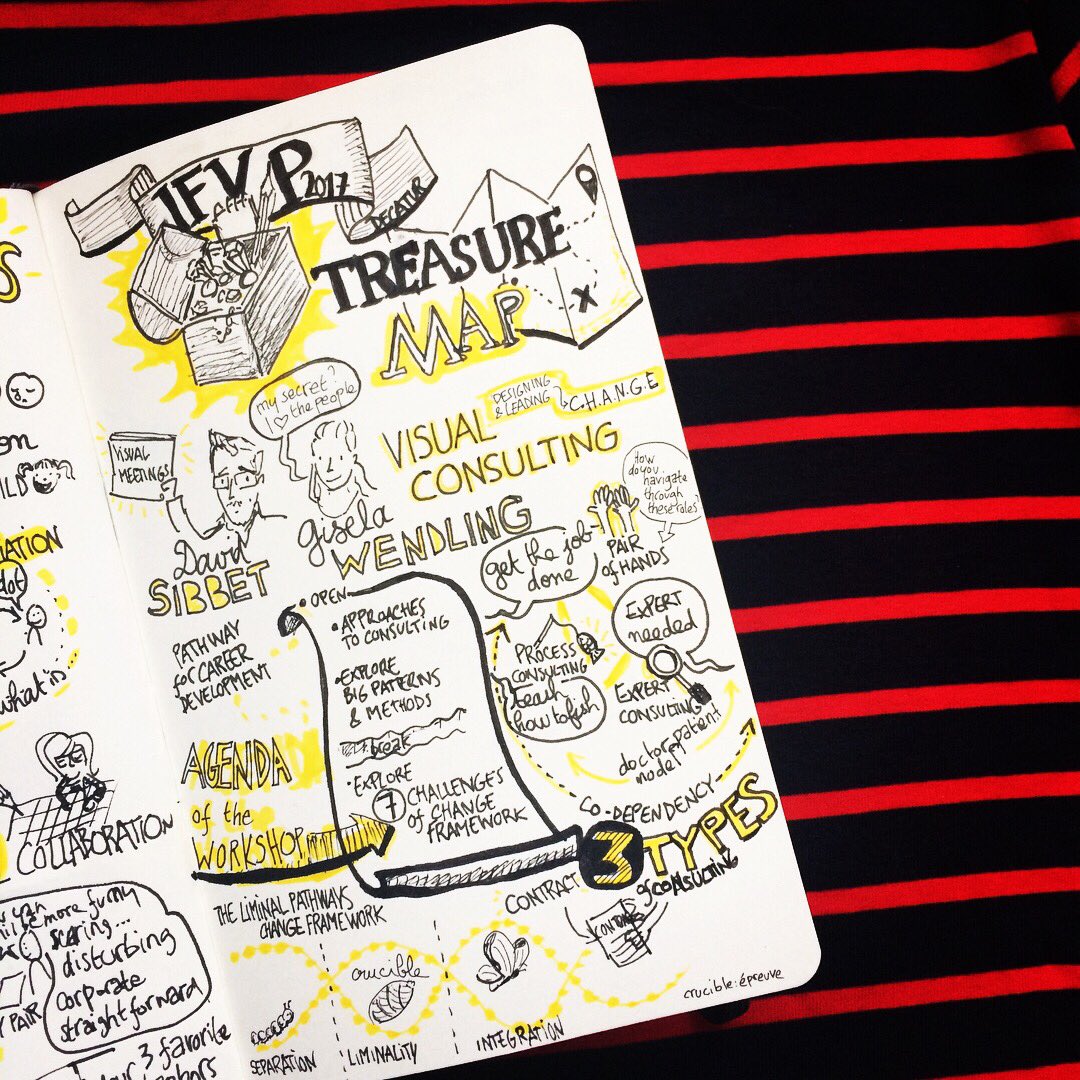 IFVP
2017
DECATUR
TREASURE
MAP
DESIGNING
& LEADING
C.H.A.N.G.E
VISUAL
CONSULTING
my secret?
I ♡ the people
VISUAL
MEETINGS
David
SIBBET
Gisela
WENDLING
PATHWAY
for CAREER
DEVELOPMENT
AGENDA
of the
WORKSHOP
• OPEN
• APPROACHES
TO CONSULTING
• EXPLORE
BIG PATTERNS
& METHODS
break
• EXPLORE
7 CHALLENGES
OF CHANGE
FRAMEWORK
How
do you
navigate
through
these roles?
get the job
done
PAIR
of HANDS
EXPERT
needed
EXPERT
CONSULTING
doctor-patient
model
PROCESS
CONSULTING
teach
how to fish
CO-DEPENDENCY
3 TYPES
of CONSULTING
CONTRACT
THE LIMINAL PATHWAYS
CHANGE FRAMEWORK
crucible
SEPARATION
LIMINALITY
INTEGRATION
crucible: épreuve
S
on
ILD
IATION
dot
what in
COLLABORATION
more funny
scaring...
disturbing
corporate
straightforward
PAIR
3 favorite